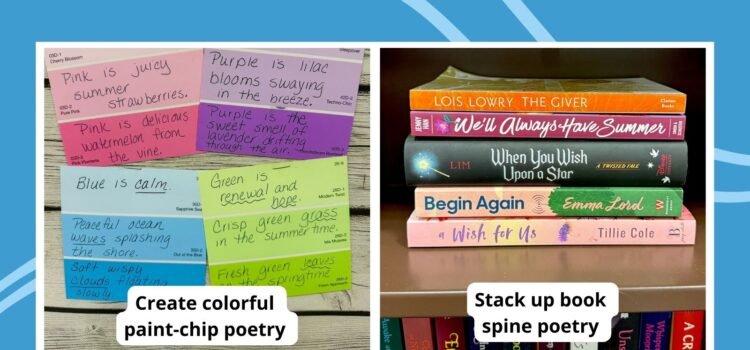 03D-1
Cherry Blossom
Pink is juicy
summer
strawberries.
03D-2
Pure Pink
Pink is delicious
watermelon from
the vine.
03D-3
Sleepover
Purple is lilac
blooms swaying
in the breeze.
Techno-Chic
Purple is the
sweet smell of
lavender drifting
through the air.
Blue is calm.
Sapphire
Peaceful ocean
waves splashing
the shore.
Out of the Blue
Soft wispy
clouds floating
slowly.
Green is
renewal and
hope.
Modern Twist
Crisp green grass
in the summertime.
Fresh green leaves
in the springtime
Create colorful
paint-chip poetry
LOIS LOWRY THE GIVER
JENNY HAN We'll Always Have Summer
LIM When You Wish Upon a Star A TWISTED TALE
Begin Again Emma Lord W
a Wish for Us Tillie Cole B
Stack up book
spine poetry
A CR